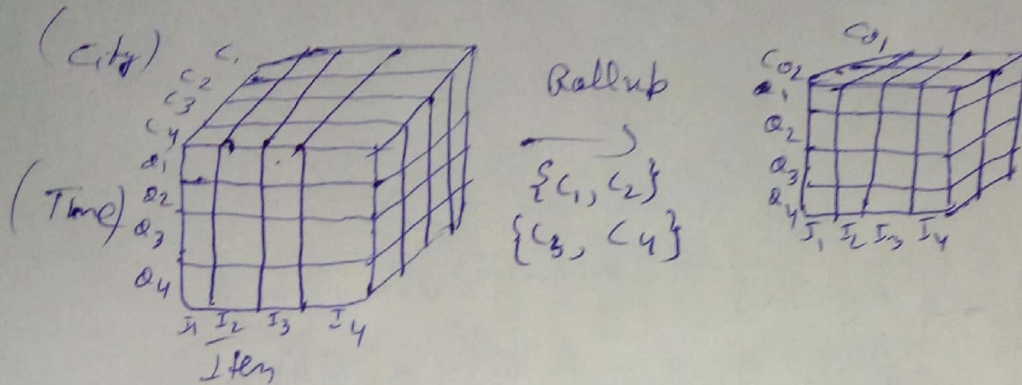 (City)
C1
C2
C3
C4
(Time)
Q1
Q2
Q3
Q4
I1 I2 I3 I4
Item
Rollup
{C1, C2}
{C3, C4}
Co1
Co2
Q1
Q2
Q3
Q4
I1 I2 I3 I4